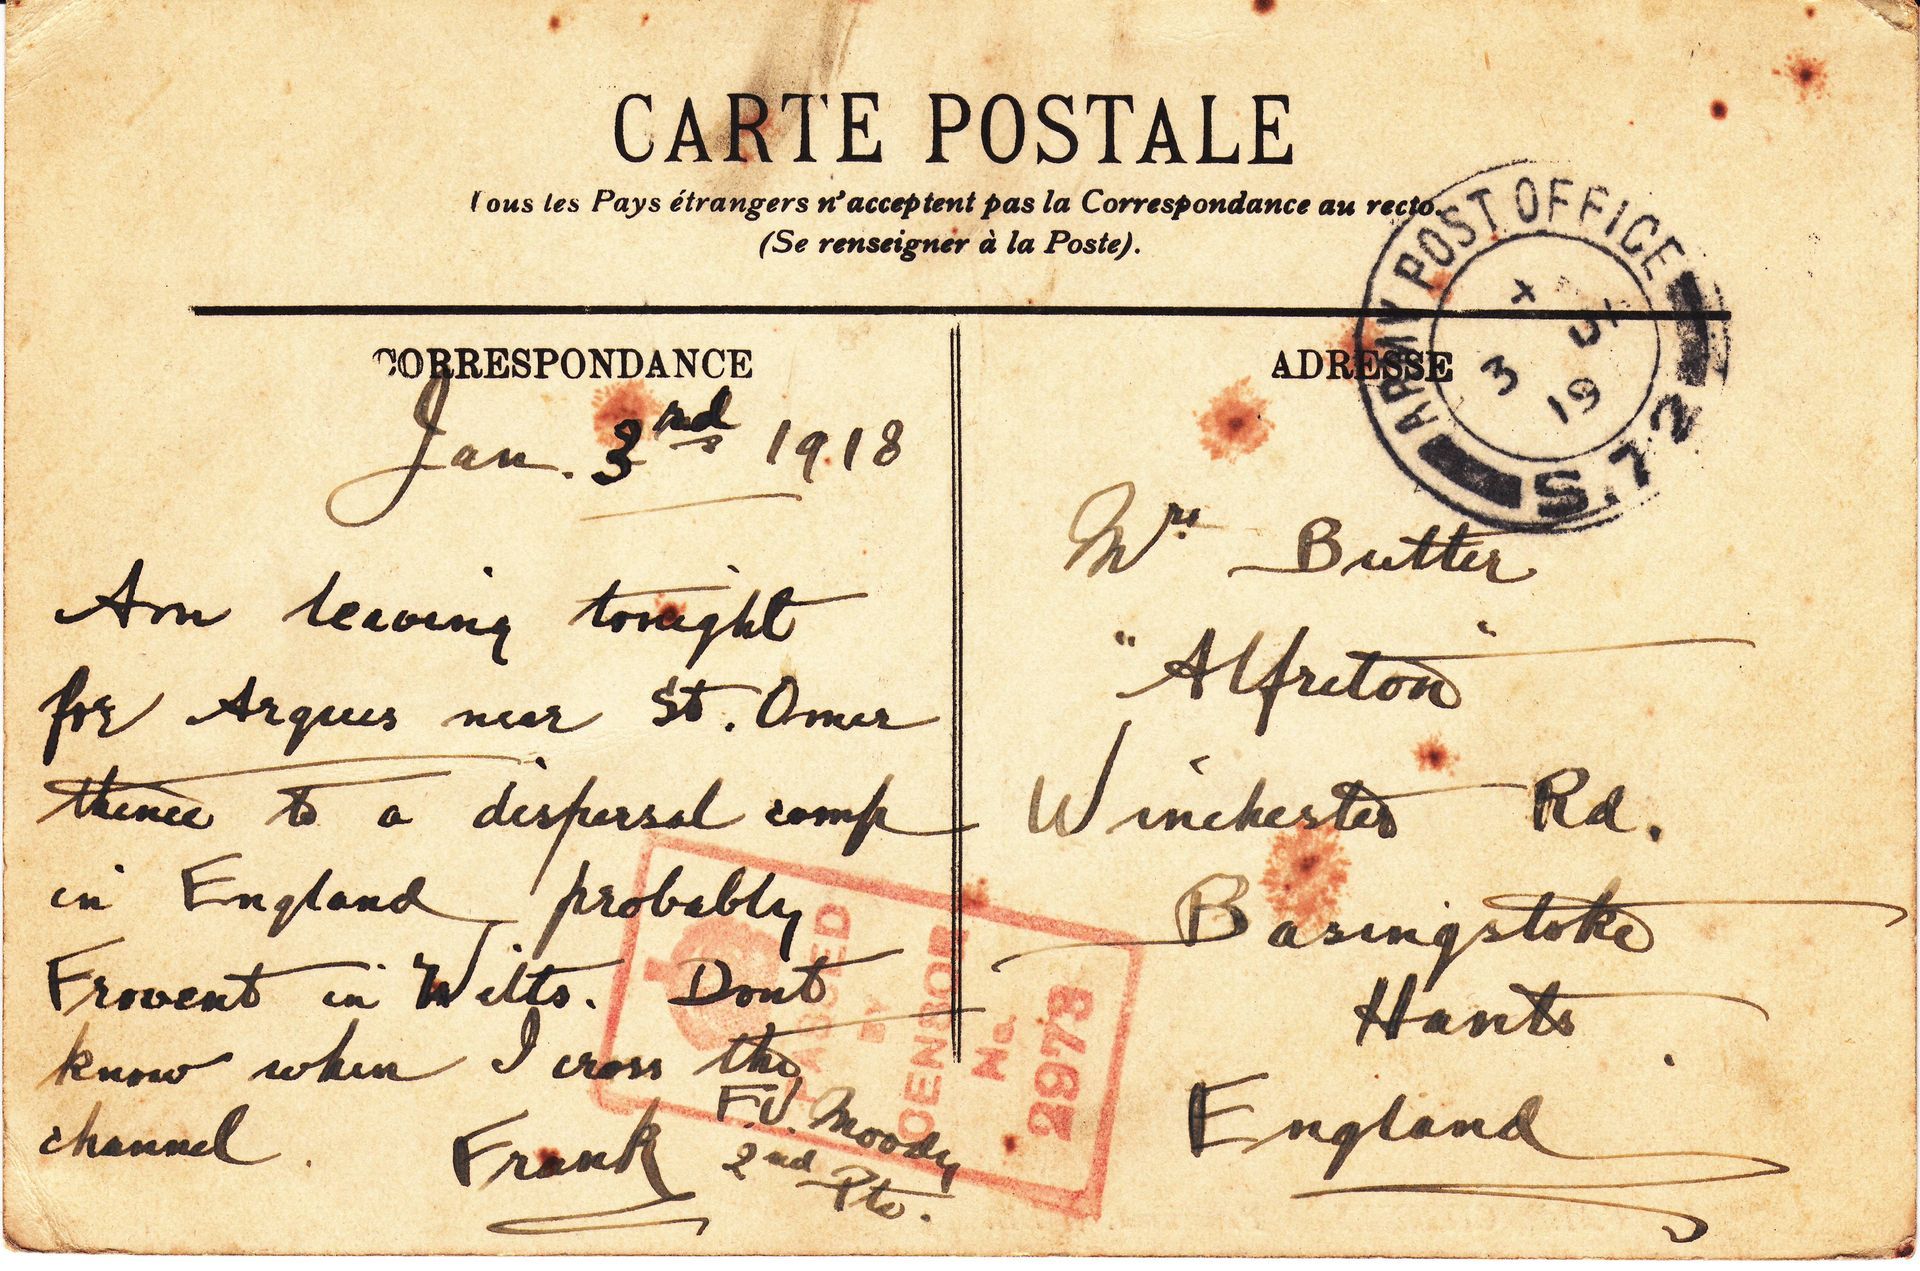 CARTE POSTALE
Tous les Pays étrangers n'acceptent pas la Correspondance au recto.
(Se renseigner à la Poste).
CORRESPONDANCE
Jan. 3rd 1918
Am leaving tonight
for Arques near St. Omer
thence to a dispersal camp
in England probably
Frovent in Wilts. Dont
know when I cross the
channel.
Frank
F.V. Moody
2nd Pte.
ADRESSE
Mrs Butter
"Alfreton"
Winchester Rd.
Basingstoke
Hants
England
ARMY POST OFFICE
3
19
S.72
PASSED
BY
CENSOR
No.
2978